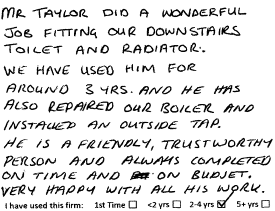 MR TAYLOR DID A WONDERFUL
JOB FITTING OUR DOWNSTAIRS
TOILET AND RADIATOR.
WE HAVE USED HIM FOR
AROUND 3 YRS. AND HE HAS
ALSO REPAIRED OUR BOILER AND
INSTALLED AN OUTSIDE TAP.
HE IS A FRIENDLY, TRUSTWORTHY
PERSON AND ALWAYS COMPLETED
ON TIME AND ON BUDJET.
VERY HAPPY WITH ALL HIS WORK.
I have used this firm: 1st Time ☐ <2 yrs ☐ 2-4 yrs ☑ 5+ yrs ☐